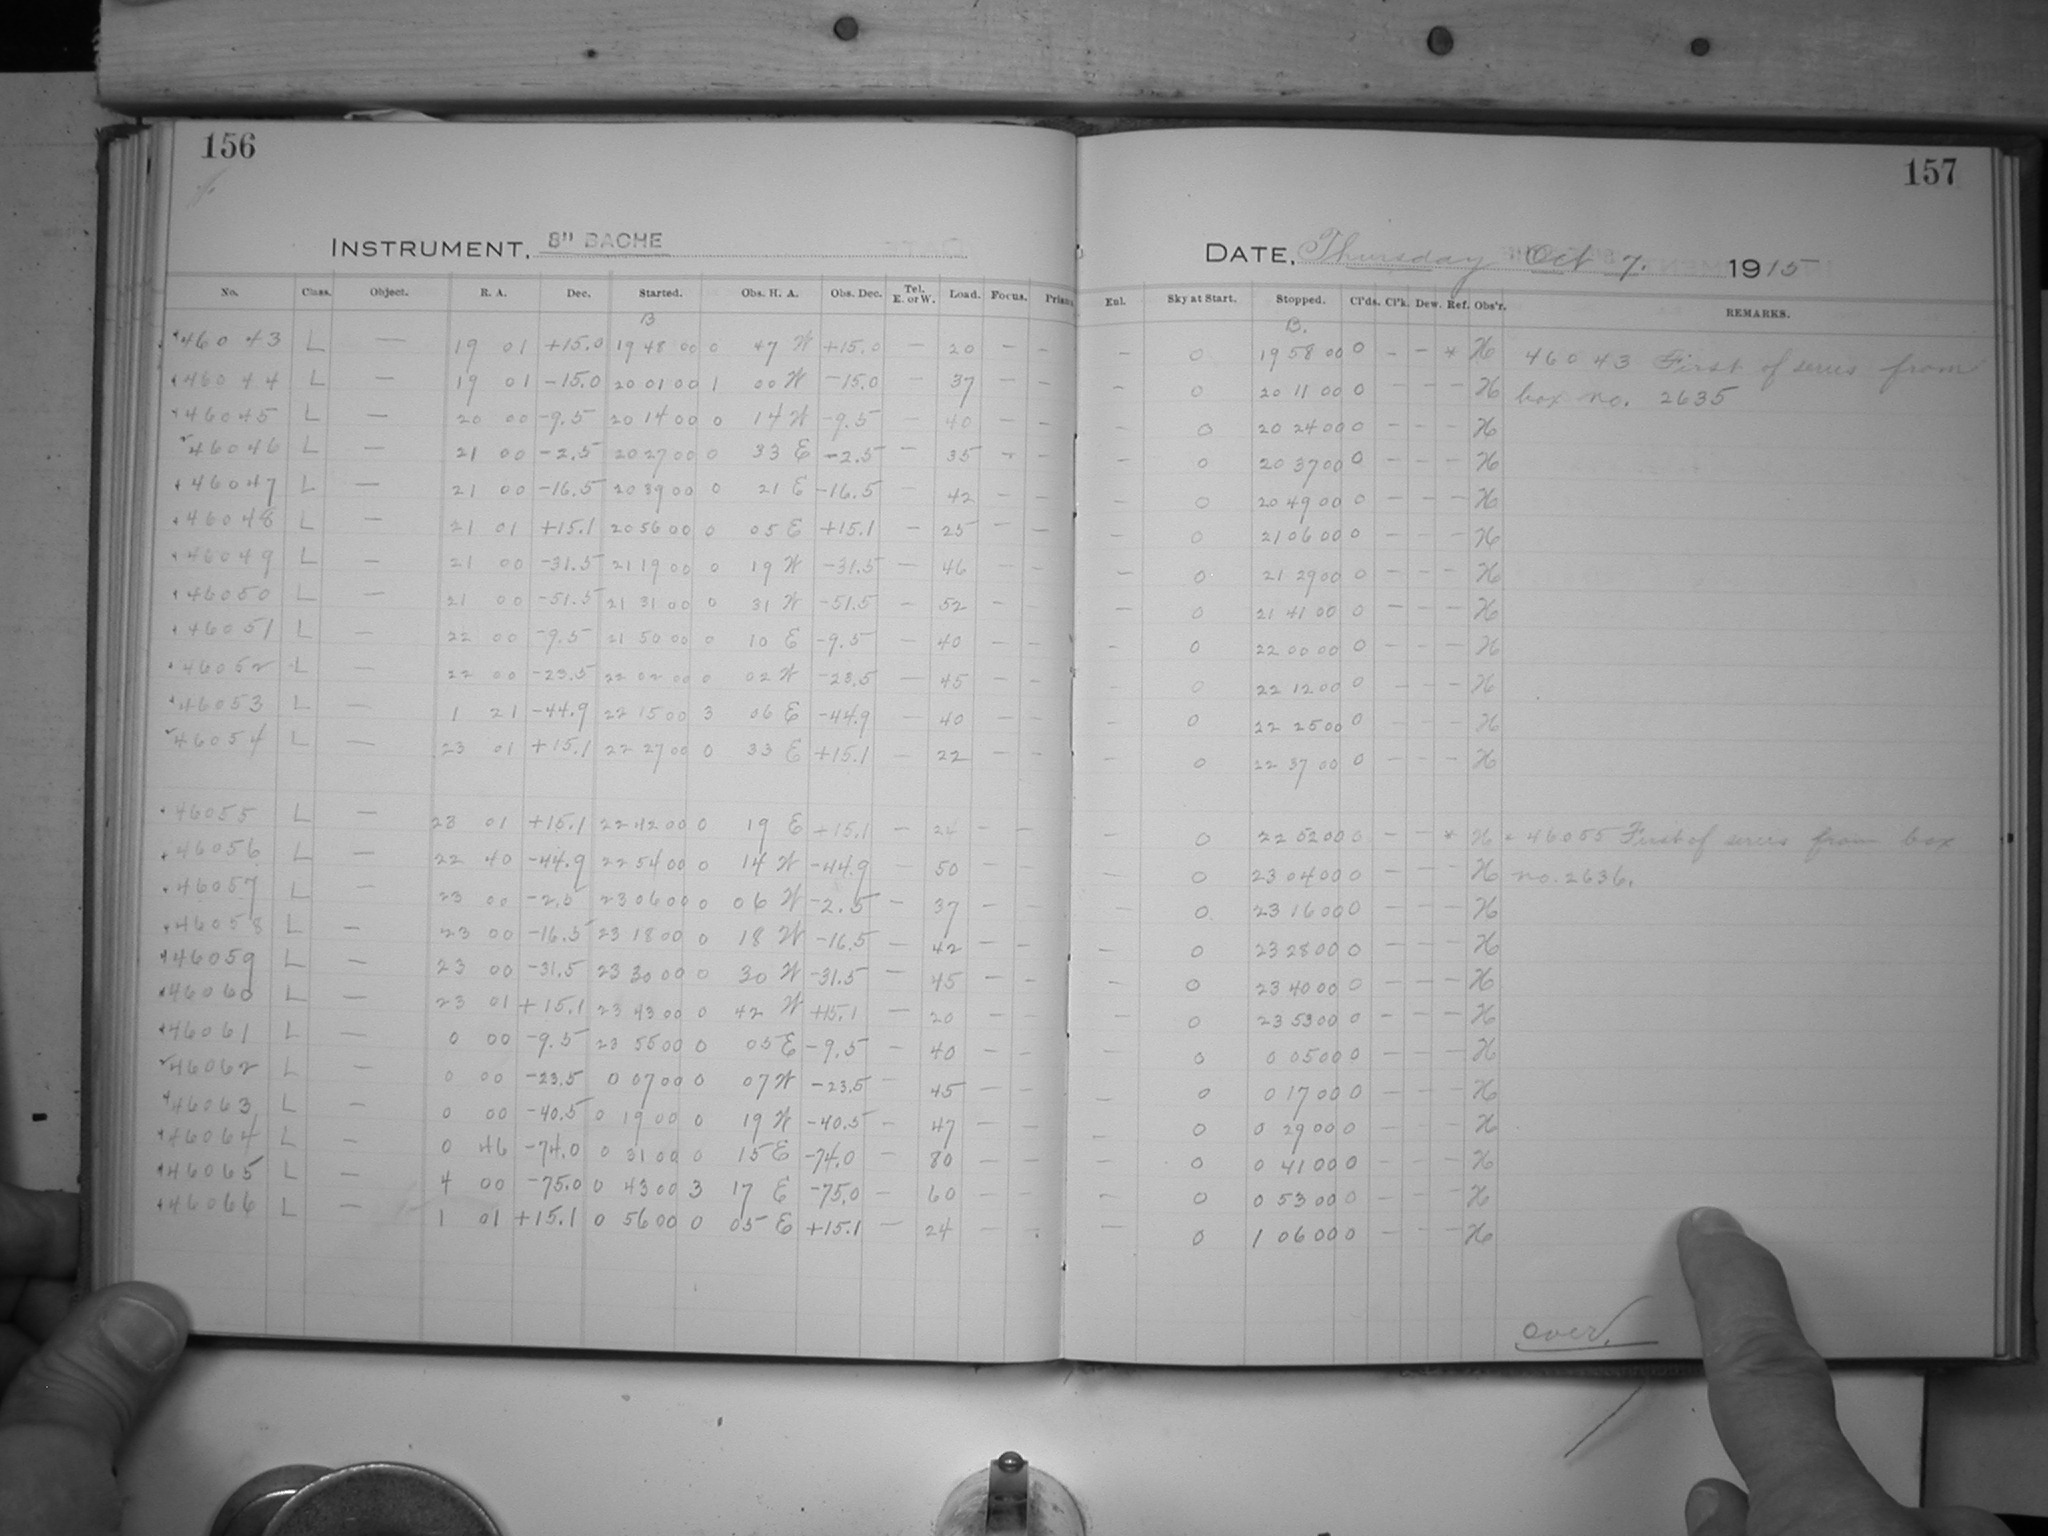 156
157
INSTRUMENT, 8" BACHE
DATE, Thursday Oct 7. 1915
No. Class. Object. R. A. Dec. Started. Obs. H. A. Obs. Dec. Tel. E. or W. Load. Focus. Prism Enl. Sky at Start. Stopped. Cl'ds. Cl'k. Dew. Ref. Obs'r. REMARKS.
B B.
46043 L — 19 01 +15.0 19 48 00 0 47 W +15.0 — 20 - - - 0 19 58 00 0 - - * H 46043 First of series from
46044 L — 19 01 -15.0 20 01 00 1 00 W -15.0 — 37 - - - 0 20 11 00 0 - - - H box no. 2635
46045 L — 20 00 -9.5 20 14 00 0 14 W -9.5 — 40 - - - 0 20 24 00 0 - - - H
46046 L — 21 00 -2.5 20 27 00 0 33 E -2.5 — 35 - - - 0 20 37 00 0 - - - H
46047 L — 21 00 -16.5 20 39 00 0 21 E -16.5 — 42 - - - 0 20 49 00 0 - - - H
46048 L — 21 01 +15.1 20 56 00 0 05 E +15.1 — 25 - - - 0 21 06 00 0 - - - H
46049 L — 21 00 -31.5 21 19 00 0 19 W -31.5 — 46 - - - 0 21 29 00 0 - - - H
46050 L — 21 00 -51.5 21 31 00 0 31 W -51.5 — 52 - - - 0 21 41 00 0 - - - H
46051 L — 22 00 -9.5 21 50 00 0 10 E -9.5 — 40 - - - 0 22 00 00 0 - - - H
46052 L — 22 00 -23.5 22 02 00 0 02 W -23.5 — 45 - - - 0 22 12 00 0 - - - H
46053 L — 1 21 -44.9 22 15 00 3 06 E -44.9 — 40 - - - 0 22 25 00 0 - - - H
46054 L — 23 01 +15.1 22 27 00 0 33 E +15.1 — 22 - - - 0 22 37 00 0 - - - H
46055 L — 23 01 +15.1 22 42 00 0 19 E +15.1 — 24 - - - 0 22 52 00 0 - - * H * 46055 First of series from box
46056 L — 22 40 -44.9 22 54 00 0 14 W -44.9 — 50 - - - 0 23 04 00 0 - - - H no. 2636.
46057 L — 23 00 -2.5 23 06 00 0 06 W -2.5 — 37 - - - 0 23 16 00 0 - - - H
46058 L — 23 00 -16.5 23 18 00 0 18 W -16.5 — 42 - - - 0 23 28 00 0 - - - H
46059 L — 23 00 -31.5 23 30 00 0 30 W -31.5 — 45 - - - 0 23 40 00 0 - - - H
46060 L — 23 01 +15.1 23 43 00 0 42 W +15.1 — 20 - - - 0 23 53 00 0 - - - H
46061 L — 0 00 -9.5 23 55 00 0 05 E -9.5 — 40 - - - 0 0 05 00 0 - - - H
46062 L — 0 00 -23.5 0 07 00 0 07 W -23.5 — 45 - - - 0 0 17 00 0 - - - H
46063 L — 0 00 -40.5 0 19 00 0 19 W -40.5 — 47 - - - 0 0 29 00 0 - - - H
46064 L — 0 46 -74.0 0 31 00 0 15 E -74.0 — 80 - - - 0 0 41 00 0 - - - H
46065 L — 4 00 -75.0 0 43 00 3 17 E -75.0 — 60 - - - 0 0 53 00 0 - - - H
46066 L — 1 01 +15.1 0 56 00 0 05 E +15.1 — 24 - - - 0 1 06 00 0 - - - H
over.